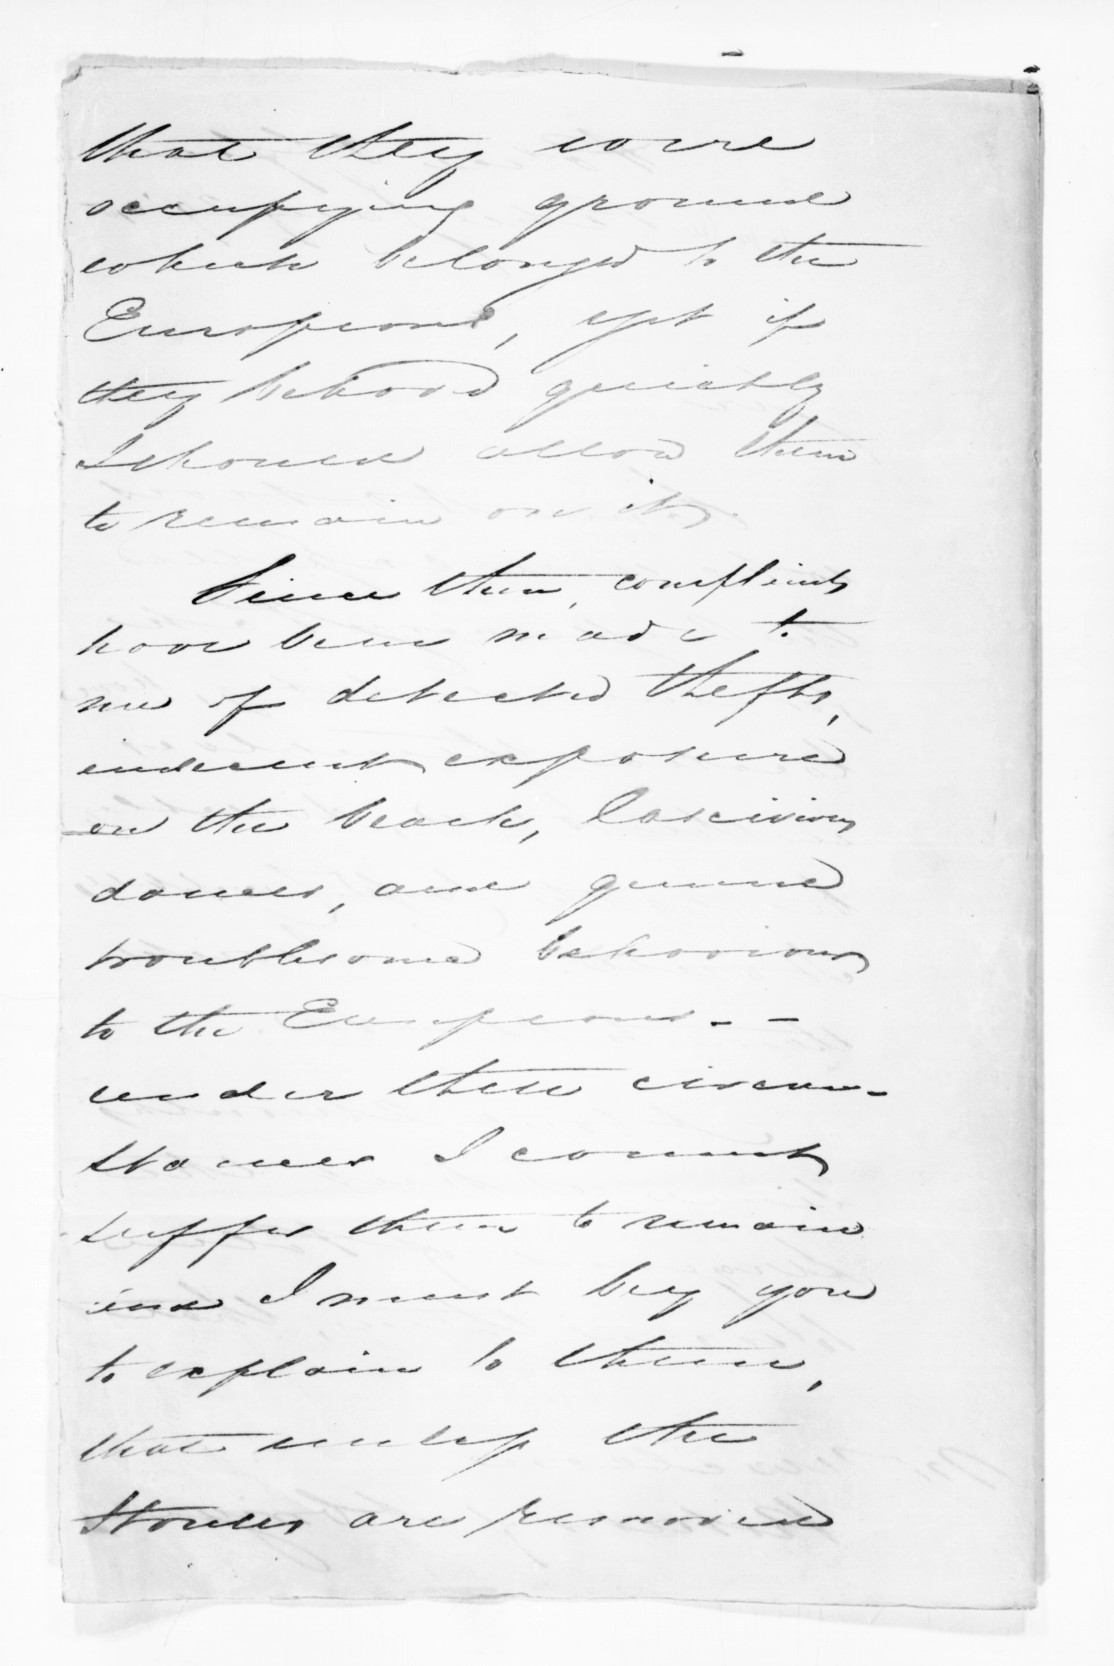 that they were
occupying ground
which belonged to the
Europeans, yet if
they behaved quietly
I should allow them
to remain on it.
Since then, complaints
have been made to
me of detected thefts,
indecent exposure
on the beach, lascivious
dances, and general
troublesome behaviour
to the Europeans. - -
under these circum-
stances I cannot
suffer them to remain
and I must beg you
to explain to them,
that unless the
Houses are removed